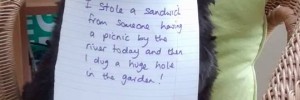 I stole a sandwich
from someone having
a picnic by the
river today and then
I dug a huge hole
in the garden!